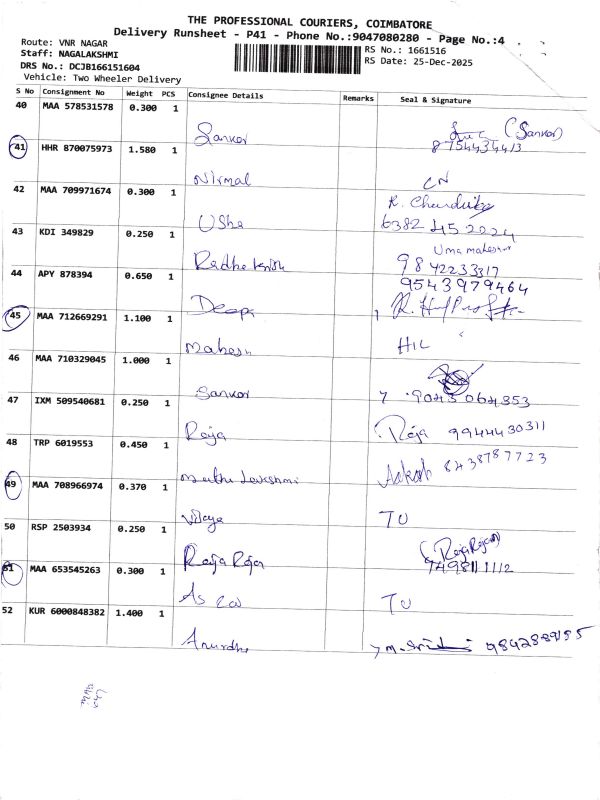 THE PROFESSIONAL COURIERS, COIMBATORE
Delivery Runsheet - P41 - Phone No.:9047080280 - Page No.:4
Route: VNR NAGAR
Staff: NAGALAKSHMI
DRS No.: DCJB166151604
Vehicle: Two Wheeler Delivery
RS No.: 1661516
RS Date: 25-Dec-2025
S No Consignment No Weight PCS Consignee Details Remarks Seal & Signature
40 MAA 578531578 0.300 1
Sankar (Sankar)
8754434413
41 HHR 870075973 1.580 1
Nirmal CN
42 MAA 709971674 0.300 1
R. Chandrika
Usha 6382 45 2024
43 KDI 349829 0.250 1
Uma maheswari
Radha krish 9842233317
44 APY 878394 0.650 1
9543979464
Deepa
45 MAA 712669291 1.100 1
Mahesh HIL
46 MAA 710329045 1.000 1
Sankar 9043064353
47 IXM 509540681 0.250 1
Raja Raja 9944430311
48 TRP 6019553 0.450 1
Muthu Lakshmi Aakash 8438787723
49 MAA 708966974 0.370 1
Vijaya TO
50 RSP 2503934 0.250 1
Raja Raja (RajaRajan)
9498111112
51 MAA 653545263 0.300 1
TO
52 KUR 6000848382 1.400 1
Anuradha 9842889155